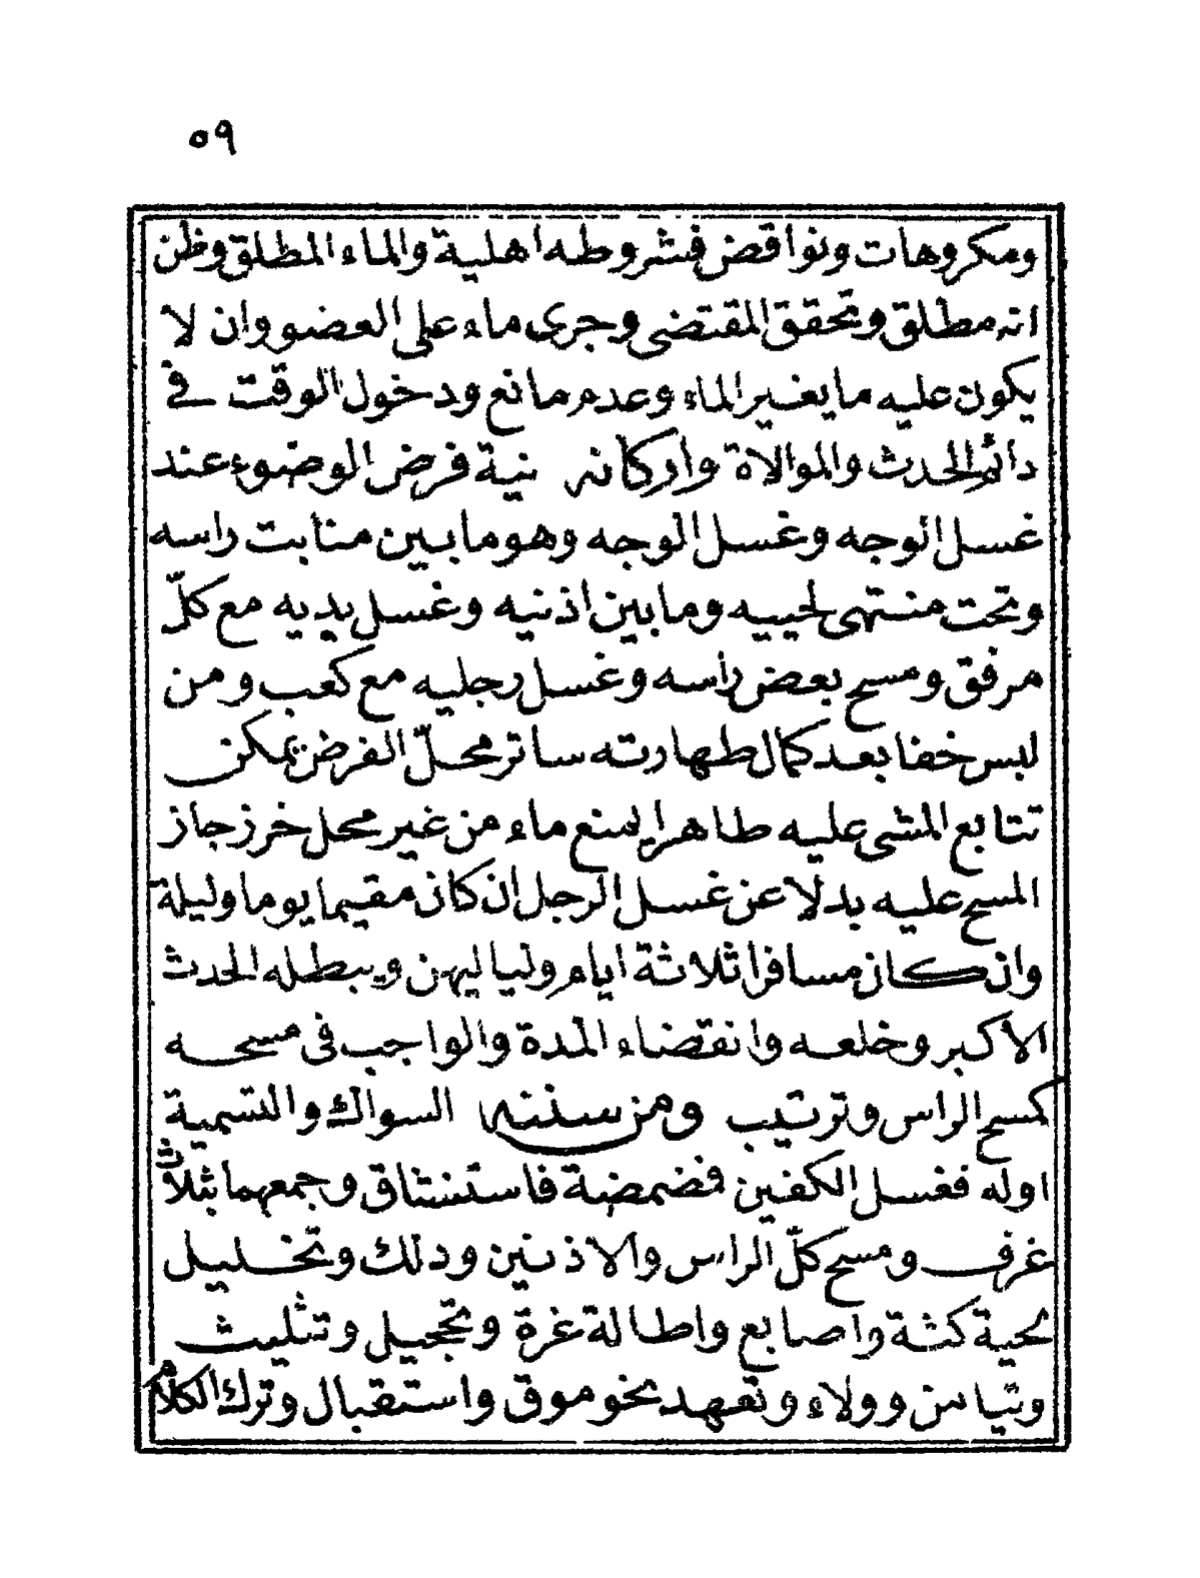 ٥٩
ومكروهات ونواقض فشروطه اهلية والماء المطلق وظن
انه مطلق وتحقق المقتضى وجرى ماء على العضو وان لا
يكون عليه ما يغير الماء وعدم مانع ودخول الوقت في
دائم الحدث والموالاة واركانه نية فرض الوضوء عند
غسل الوجه وغسل الوجه وهو ما بين منابت راسه
وتحت منتهى لحييه وما بين اذنيه وغسل يديه مع كلّ
مرفق ومسح بعض راسه وغسل رجليه مع كعب ومن
لبس خفا بعد كمال طهارته ساتر محلّ الفرض يمكن
تتابع المشى عليه طاهرا يمنع ماء من غير محل خرز جاز
المسح عليه بدلا عن غسل الرجل ان كان مقيما يوما وليلة
وان كان مسافرا ثلاثة ايام ولياليهن ويبطله الحدث
الأكبر وخلعه وانقضاء المدة والواجب فى مسحه
كمسح الراس وترتيب ومن سننه السواك والتسمية
اوله فغسل الكفين فمضمضة فاستنشاق وجمعهما بثلاث
غرف ومسح كلّ الراس والاذنين ودلك وتخليل
لحية كثة واصابع واطالة غرة وتحجيل وتثليث
وتيامن وولاء وتعهد نحو موق واستقبال وترك الكلام